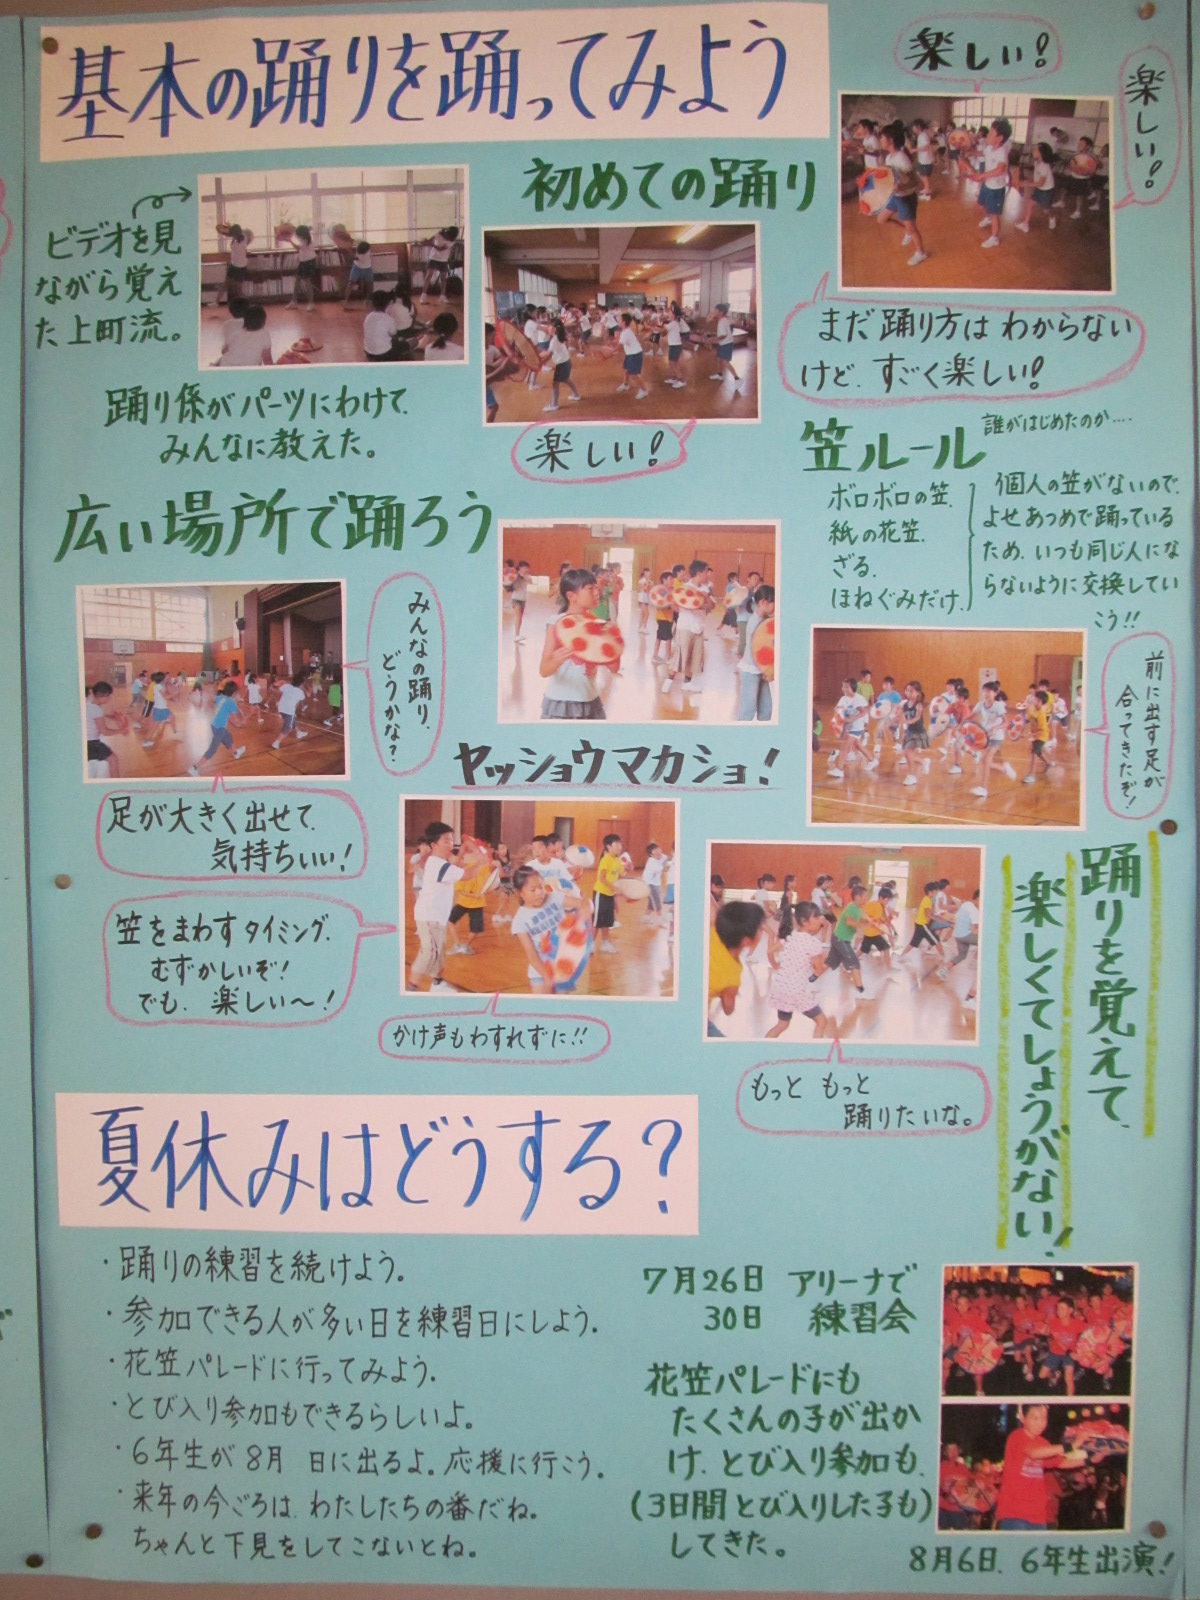 基本の踊りを踊ってみよう
ビデオを見
ながら覚え
た上町流。
踊り係がパーツにわけて、
みんなに教えた。
初めての踊り
楽しい!
楽しい!
楽しい!
まだ踊り方はわからない
けど、すごく楽しい!
笠ルール
誰がはじめたのか‥‥
ボロボロの笠、
紙の花笠、
ざる、
ほねぐみだけ、
個人の笠がないので、
よせあつめで踊っている
ため、いつも同じ人にな
らないように交換してい
こう!!
広い場所で踊ろう
みんなの踊り、
どうかな?
足が大きく出せて、
気持ちいい!
ヤッショウマカショ!
前に出す足が
合ってきたぞ!
笠をまわすタイミング、
むずかしいぞ!
でも、楽しい〜!
かけ声もわすれずに!!
もっと もっと
踊りたいな。
踊りを覚えて、
楽しくてしょうがない!
夏休みはどうする?
・踊りの練習を続けよう。
・参加できる人が多い日を練習日にしよう。
・花笠パレードに行ってみよう。
・とび入り参加もできるらしいよ。
・6年生が8月 日に出るよ。応援に行こう。
・来年の今ごろは、わたしたちの番だね。
ちゃんと下見をしてこないとね。
7月26日 アリーナで
30日 練習会
花笠パレードにも
たくさんの子が出か
け、とび入り参加も、
(3日間とび入りした子も)
してきた。
8月6日、6年生出演!